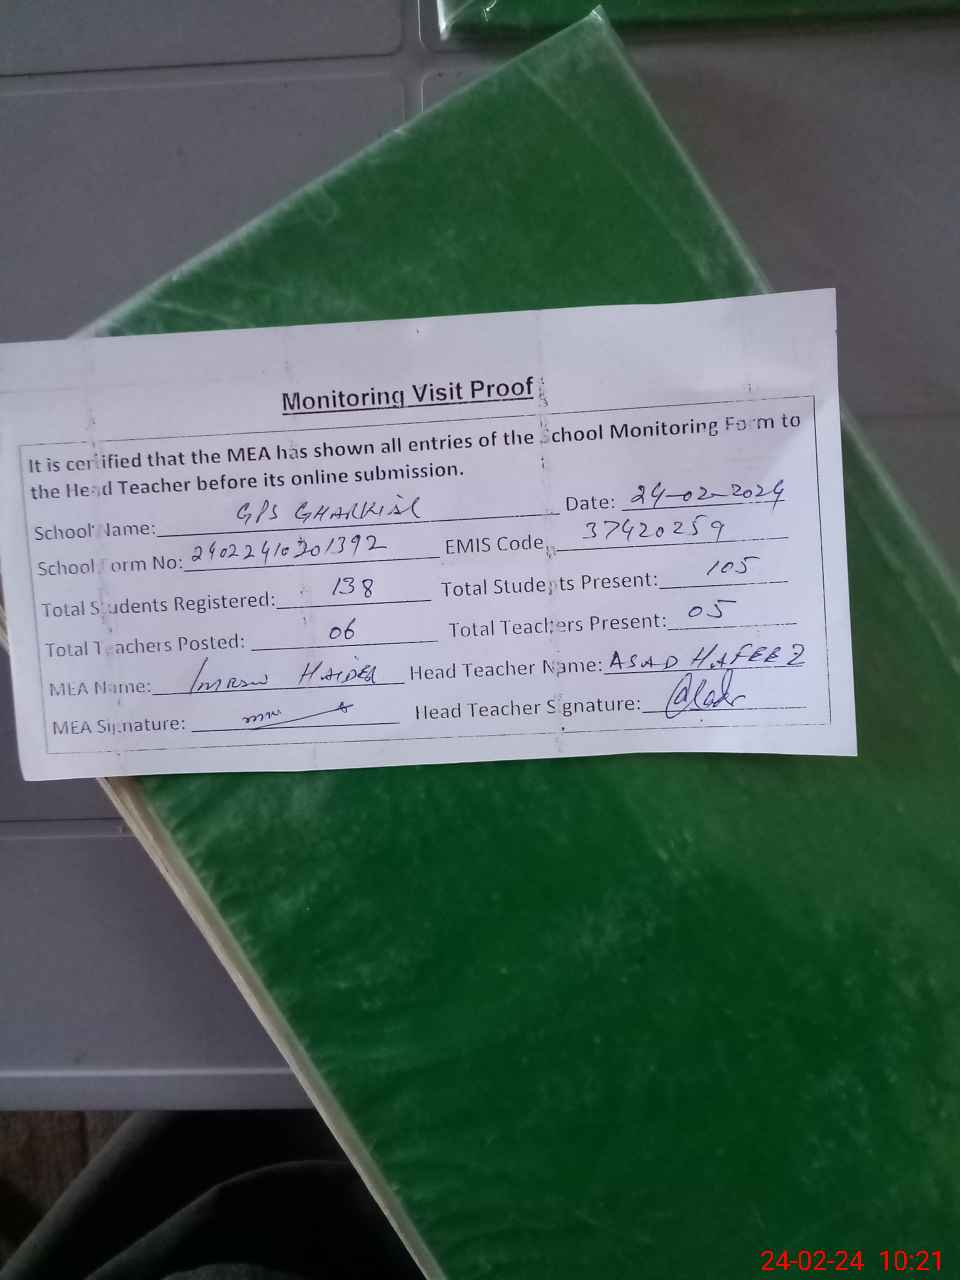 Monitoring Visit Proof
It is certified that the MEA has shown all entries of the School Monitoring Form to
the Head Teacher before its online submission.
School Name: GPS Date: 24-02-2024
School Form No: EMIS Code 37420259
Total Students Registered: 138 Total Students Present: 105
Total Teachers Posted: 06 Total Teachers Present: 05
MEA Name: Imran Haider Head Teacher Name: ASAD HAFEEZ
MEA Signature: Head Teacher Signature:
24-02-24 10:21